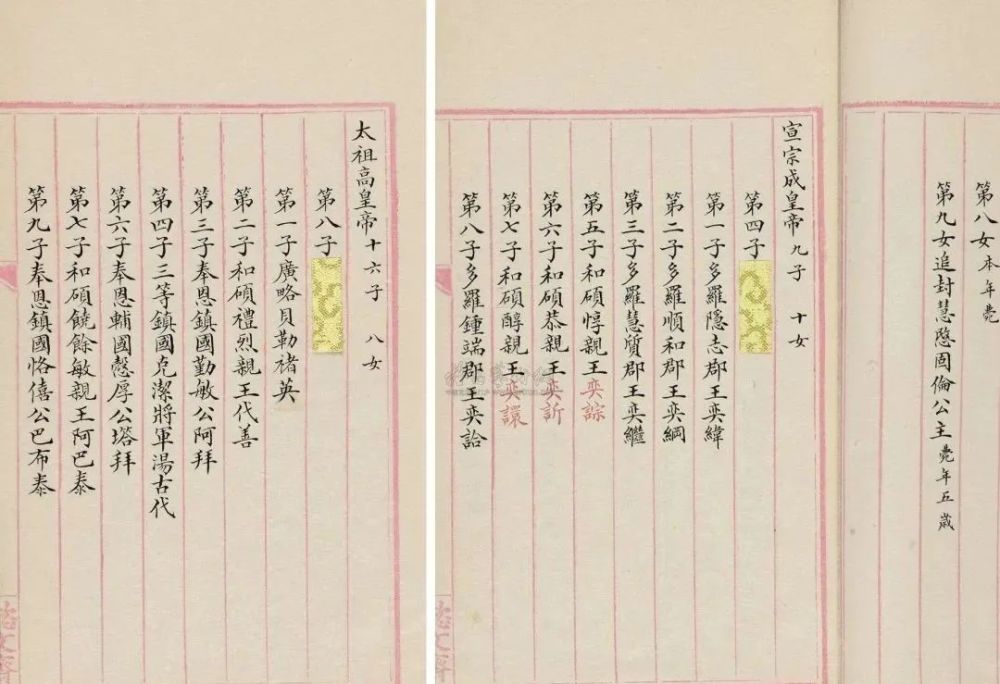 太祖高皇帝 十六子 八女
第八子
第一子廣略貝勒褚英
第二子和碩禮烈親王代善
第三子奉恩鎮國勤敏公阿拜
第四子三等鎮國克潔將軍湯古代
第六子奉恩輔國慤厚公塔拜
第七子和碩饒餘敏親王阿巴泰
第九子奉恩鎮國恪僖公巴布泰
第八女本年薨
第九女追封慧愍固倫公主薨年五歲
宣宗成皇帝 九子 十女
第四子
第一子多羅隱志郡王奕緯
第二子多羅順和郡王奕綱
第三子多羅慧質郡王奕繼
第五子和碩惇親王奕誴
第六子和碩恭親王奕訢
第七子和碩醇親王奕譞
第八子多羅鍾端郡王奕詥